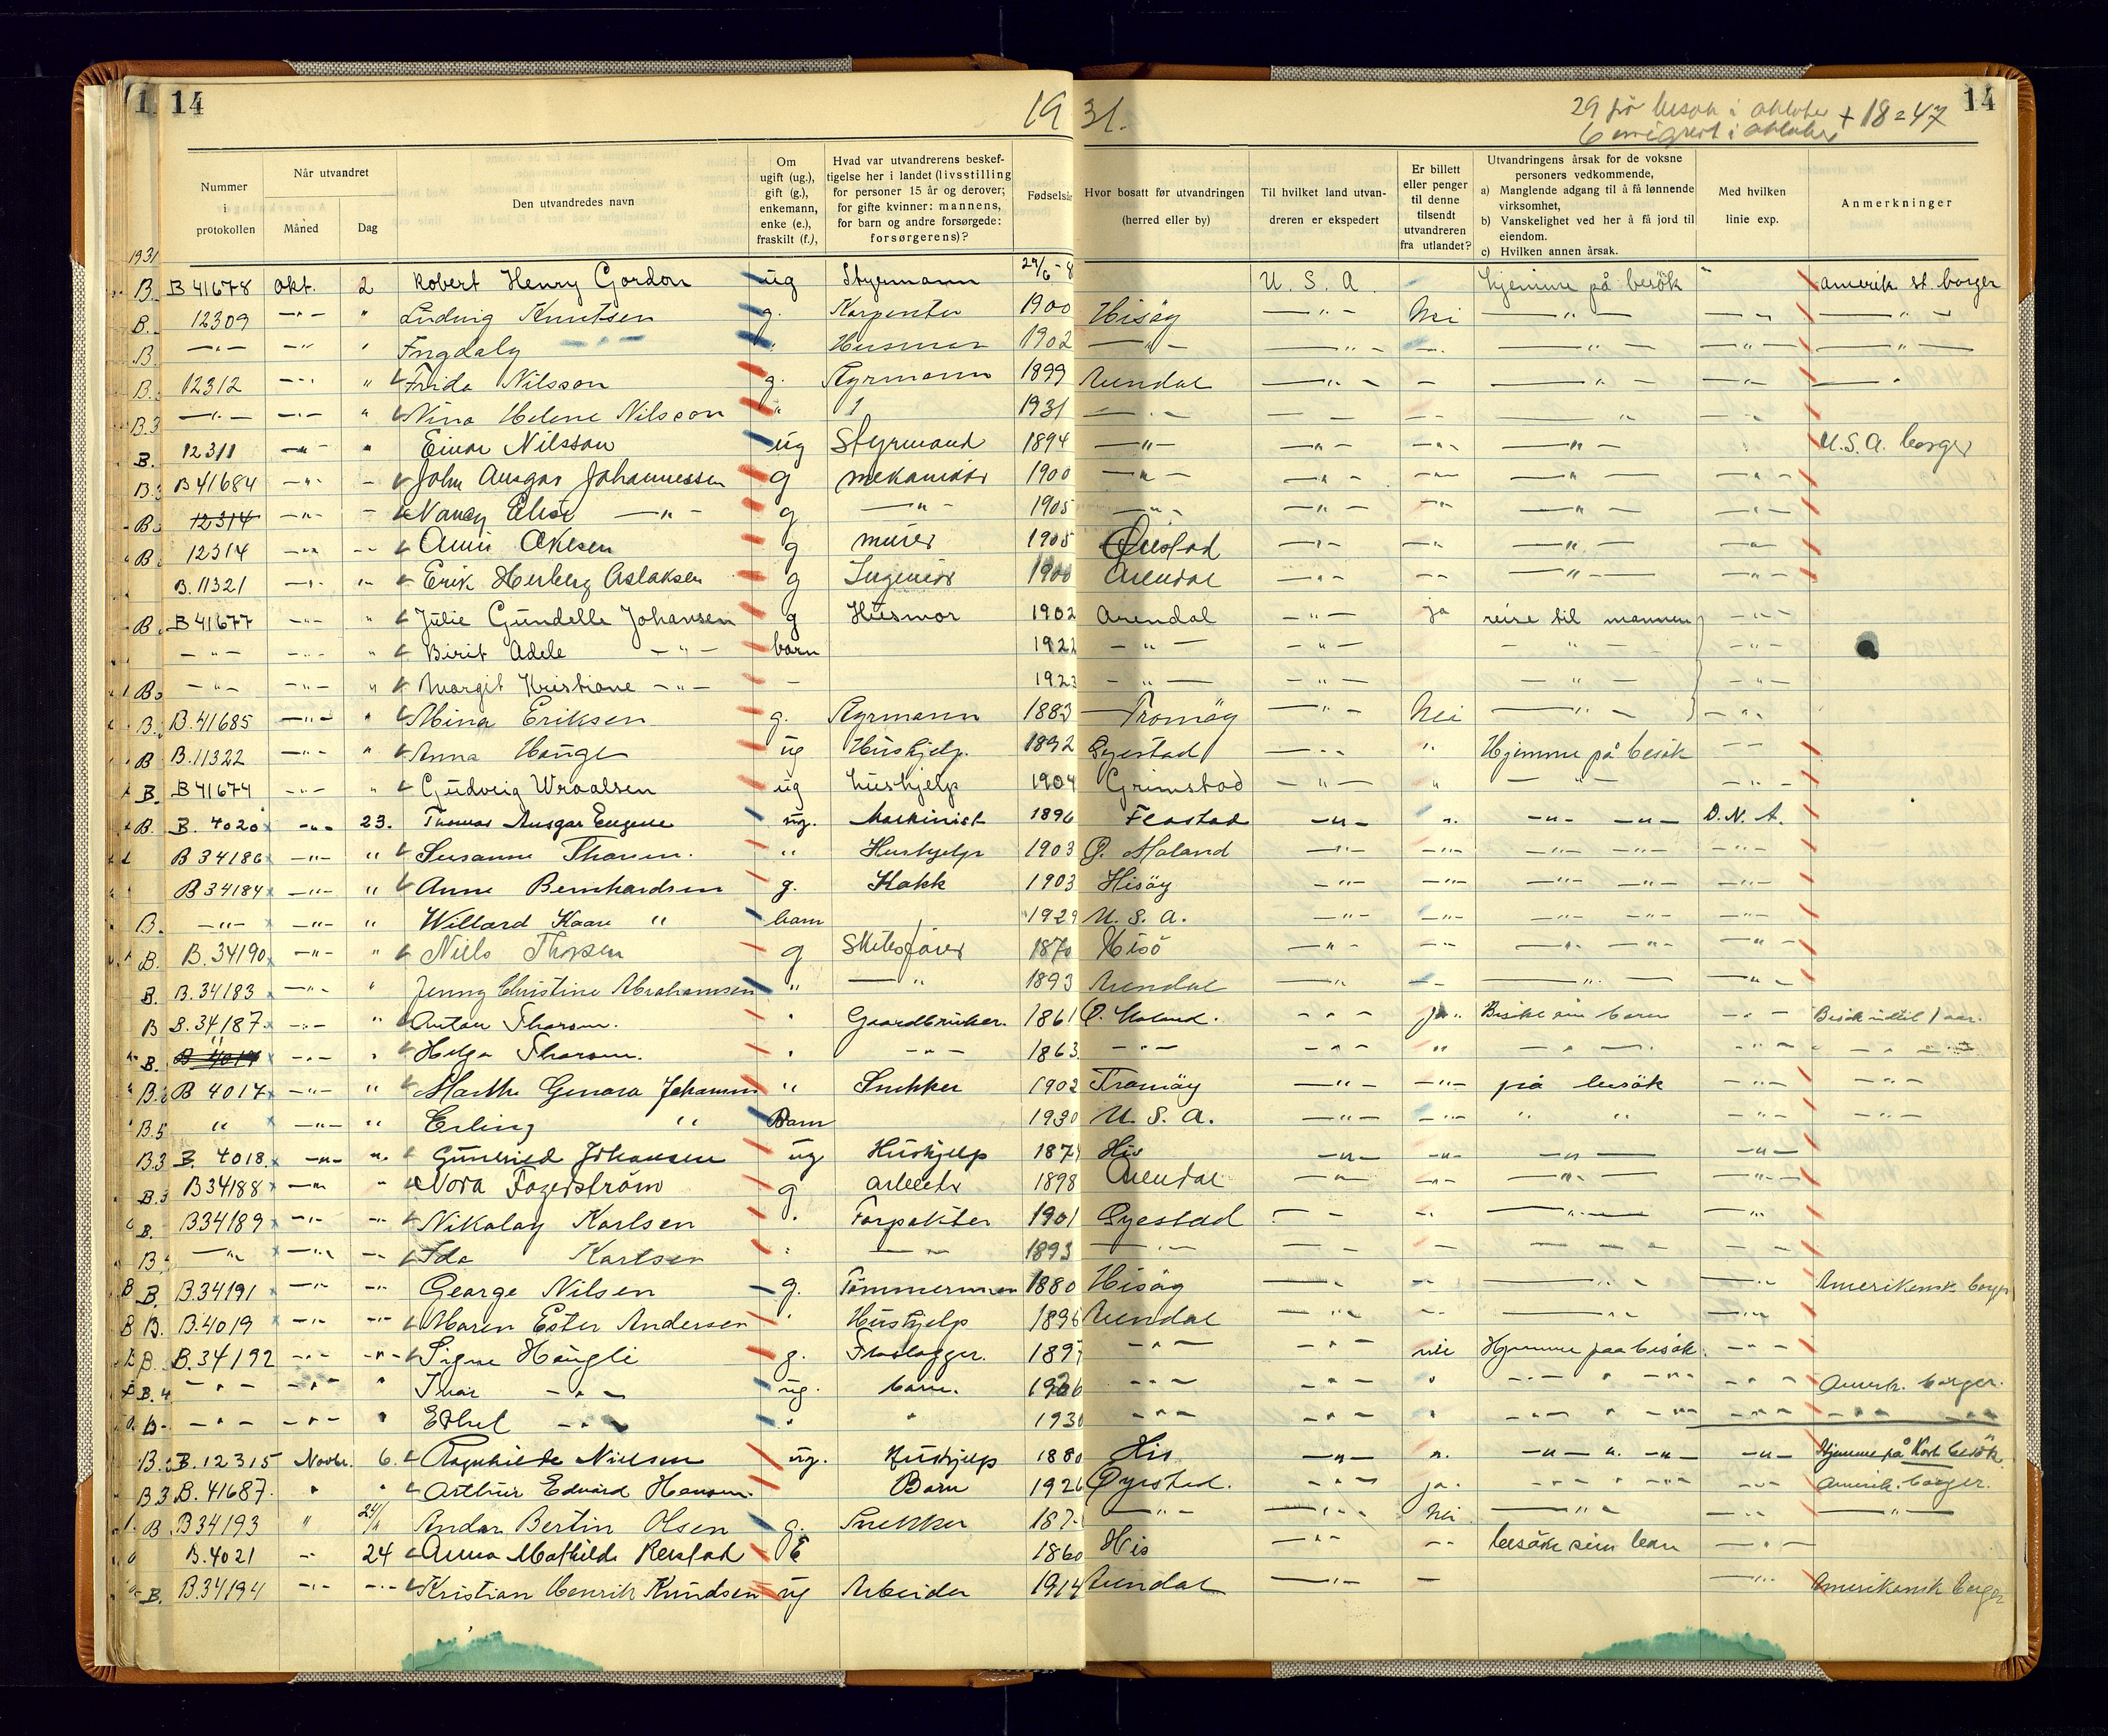 1 14
19 31.
29 på besøk i oktober + 18 = 47
6 emigrert i oktober
14
Nummer i protokollen
Når utvandret
Måned
Dag
Den utvandredes navn
Om ugift (ug.), gift (g.), enkemann, enke (e.), fraskilt (f.),
Hvad var utvandrerens beskef-tigelse her i landet (livsstilling for personer 15 år og derover; for gifte kvinner: mannens, for barn og andre forsørgede: forsørgerens)?
Fødselsår
Hvor bosatt før utvandringen (herred eller by)
Til hvilket land utvan-dreren er ekspedert
Er billett eller penger til denne tilsendt utvandreren fra utlandet?
Utvandringens årsak for de voksne personers vedkommende,
a) Manglende adgang til å få lønnende virksomhet,
b) Vanskelighet ved her å få jord til eiendom.
c) Hvilken annen årsak.
Med hvilken linie exp.
Anmerkninger
1931
B. B 41678 okt. 2 Robert Henry Gordon ug Styrmann 29/6-8 U.S.A. hjemme på besök " amerik. st. borger
B. 12309 —"— " Ludvig Knutsen g. Karpenter 1900 Hisöy —"— Nei —"— —"— —"—
B. —"— —"— " Ingdaly —"— Husmor 1902 —"— —"— — —"— —"— —"—
B. 12312 —"— " Frida Nilsson g. Styrmann 1899 Arendal —"— — —"— —"—
B.3 —"— —"— " Nina Helene Nilsson " 1 1931 —"— — — —"—
B. 12311 —"— " Einar Nilsson ug Styrmand 1894 —"— — —"— —"— U.S.A. borger
B.3 B 41684 —"— - John Ansgar Johannessen g mekaniker 1900 —"— —"— —"— —"— —"—
B. 12314 —"— - Nancy Elise —"— g —"— 1905 —"— —"— —"— —"— —"—
B. 12314 —"— -- Anni Olsen g murer 1905 Øiestad —"— —"— —"— —"—
B. 11321 —"— -- Erik Herberg Aslaksen g Ingeniör 1900 Arendal —"— -- —"— —"—
B. B 41677 —"— " Julie Gundelle Johansen g Husmor 1902 Arendal —"— ja reise til mannen —"—
—"— —"— " Birit Adele —"— barn 1922 —"— —"— —"— —"—
B. —"— —"— " Margit Kristiane —"— — 1923 —"— —"— —"— —"—
B. B. 41685 —"— " Mina Eriksen g. Styrmann 1883 Tromöy —"— Nei —"— —"—
B B. 11322 —"— " Anna Hauge ug Hushjelp. 1892 Öyestad —"— " Hjemme på besök —
B. B 41674 —"— " Gudveig Wroalsen ug hushjelp 1904 Grimstad —"— " —"— —"—
B. B. 4020 —"— 23. Thomas Ansgar Eugene ug. Maskinist 1896 Feastad —"— ". —"— —"— D.N.A.
B 34186 —"— " Susanne Thorsen. " Hushjelp 1903 Ø. Moland —"— —"— —"— —"— —"—
B 34184 —"— " Anne Bernhardsen g. Kokk 1903 Hisöy —"— —"— —"— —"— —"—
B. —"— —"— " Willard Kaare " barn 1929 U.S.A. —"— —"— —"— —"— —"—
B. B. 34190 —"— " Niels Thorsen g Skibsförer 1870 Hisö —"— —"— —"— —"— —"—
B. B. 34183 —"— " Jenny Christine Abrahamsen " —"— 1893 Arendal —"— — —"— —"—
B B. 34187 —"— " Anton Tharsen. " Gaardbruker. 1861 Ø. Moland. —"— ja. Besöke sine barn —"— Besök indtil 1 aar.
B. B 4017 —"— " Helga Tharsen. " —"— 1863. —"— —"— " —"— —"— —"—
B.3 B 4017 —"— " Marthe Genora Johannsen " Snekker 1902 Tromöy —"— —"— på besök —"— —"—
B.5 " —"— " Erling " Barn 1930 U.S.A. —"— —"— " " —"— —"—
B.3 B. 4018. —"— ". Gunhild Johansen ug Hushjelp 1874 His —"— —"— —"— —"—
B.3 B 34188 —"— " Nora Fagerström g arbeider 1898 Arendal —"— —"— —"— —"—
B. B 34189 —"— -- Nikolay Karlsen " Forpakter 1901 Öyestad — —"— —"— —"—
B. —"— —"— -- Ida Karlsen " —"— 1893 —"— — — — —
B B. B. 34191 —"— —"— George Nilsen g. Tömmermann 1880 Hisöy —"— —"— —"— —"— Amerikansk borger
B B. B. 4019 —"— —"— Maren Ester Andersen " Hushjelp 1896 Arendal —"— —"— —"— —"—
B B. B. 34192 —"— —"— Signe Haugli g. 1897 —"— —"— nei Hjemme paa besök. —"—
B. 4 —"— —"— " Thor —"— ug. barn. 1926 —"— —"— " —"— " —"— —"— Amerik. borger.
B. —"— —"— " Ethel —"— " " 1930 —"— —"— " —"— " —"— —"— —"— —"—
B. B. 12315 Novbr. 6. Ragnhilde Nielsen ug. Hushjelp 1880 His —"— ". —"— ". —"— —"— Hjemme på Kort besök
B 3 B. 41687. " " Arthur Edvard Hansen. Barn 1926 Øyestad. —"— ja. —"— " —"— —"— Amerik. borger.
B B 34193 " 24/11 Andor Bertin Olsen g. Snekker 187- —"— —"— Nei —"— —"— —"—
B. 4021 -- 24 Anna Mathilde Reistad E 1860 His —"— -- besöke sine barn —"—
B. B. 34194 —"— —"— Kristian Henrik Knudsen ug Arbeider 1914 Arendal —"— — —"— Amerikansk borger